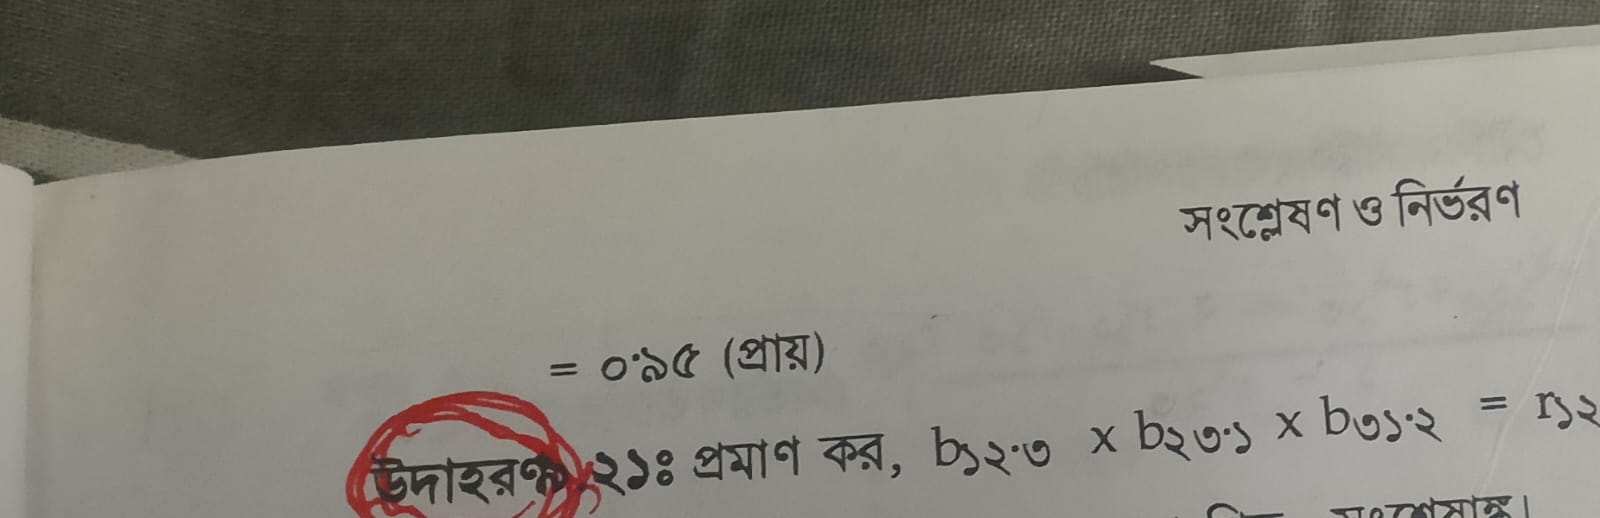 সংশ্লেষণ ও নির্ভরণ
= ০·৯৫ (প্রায়)
উদাহরণ ২১ঃ প্রমাণ কর, b১২·৩ x b২৩·১ x b৩১·২ = r১২